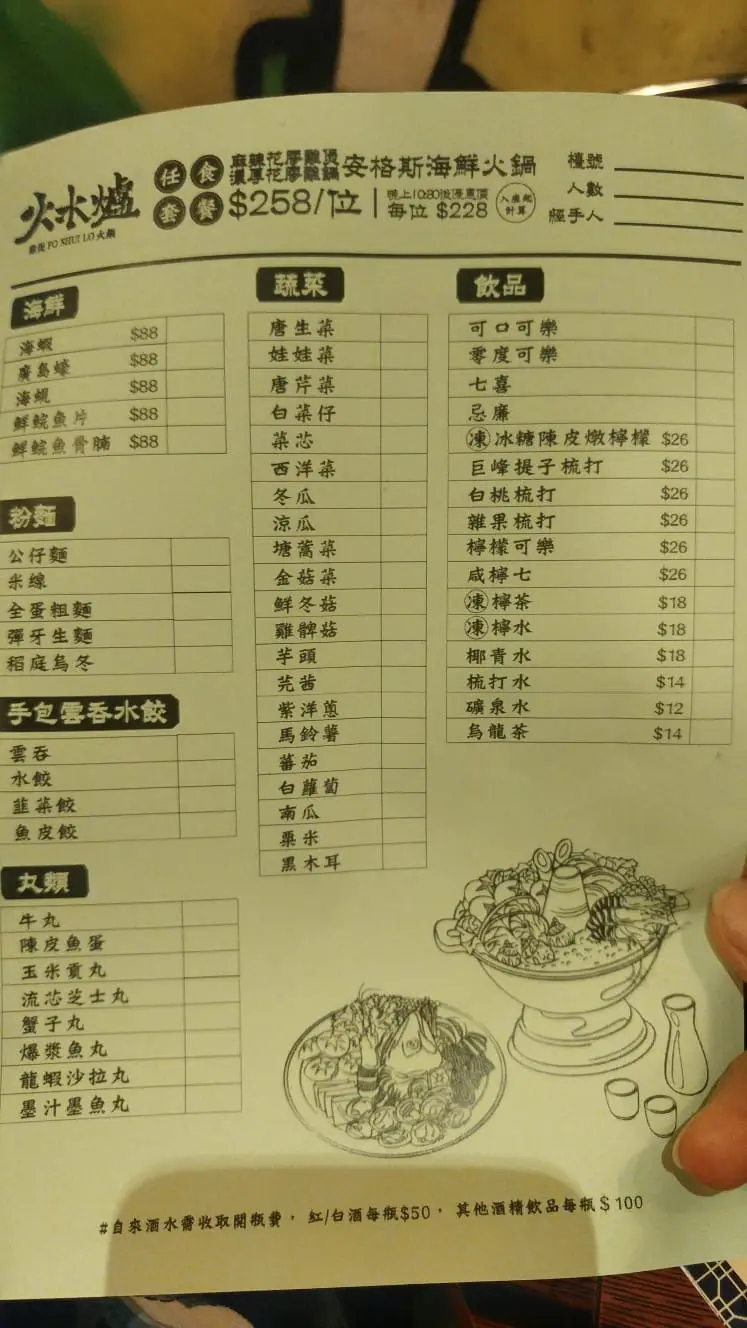 火水爐
PO SHUI LO 火鍋
任食套餐
麻辣花膠雞煲
濃厚花膠雞鍋
安格斯海鮮火鍋
$258/位
晚上10:30後優惠價
每位 $228
入座起計算
檯號
人數
經手人
海鮮
海蝦 $88
廣島蠔 $88
海蜆 $88
鮮鯇魚片 $88
鮮鯇魚骨腩 $88
粉麵
公仔麵
米線
全蛋粗麵
彈牙生麵
稻庭烏冬
手包雲吞水餃
雲吞
水餃
韮菜餃
魚皮餃
丸類
牛丸
陳皮魚蛋
玉米貢丸
流芯芝士丸
蟹子丸
爆漿魚丸
龍蝦沙拉丸
墨汁墨魚丸
蔬菜
唐生菜
娃娃菜
唐芹菜
白菜仔
菜芯
西洋菜
冬瓜
涼瓜
塘蒿菜
金菇菜
鮮冬菇
雞髀菇
芋頭
芫茜
紫洋蔥
馬鈴薯
蕃茄
白蘿蔔
南瓜
粟米
黑木耳
飲品
可口可樂
零度可樂
七喜
忌廉
凍冰糖陳皮燉檸檬 $26
巨峰提子梳打 $26
白桃梳打 $26
雜果梳打 $26
檸檬可樂 $26
咸檸七 $26
凍檸茶 $18
凍檸水 $18
椰青水 $18
梳打水 $14
礦泉水 $12
烏龍茶 $14
#自來酒水需收取開瓶費， 紅/白酒每瓶$50， 其他酒精飲品每瓶$100